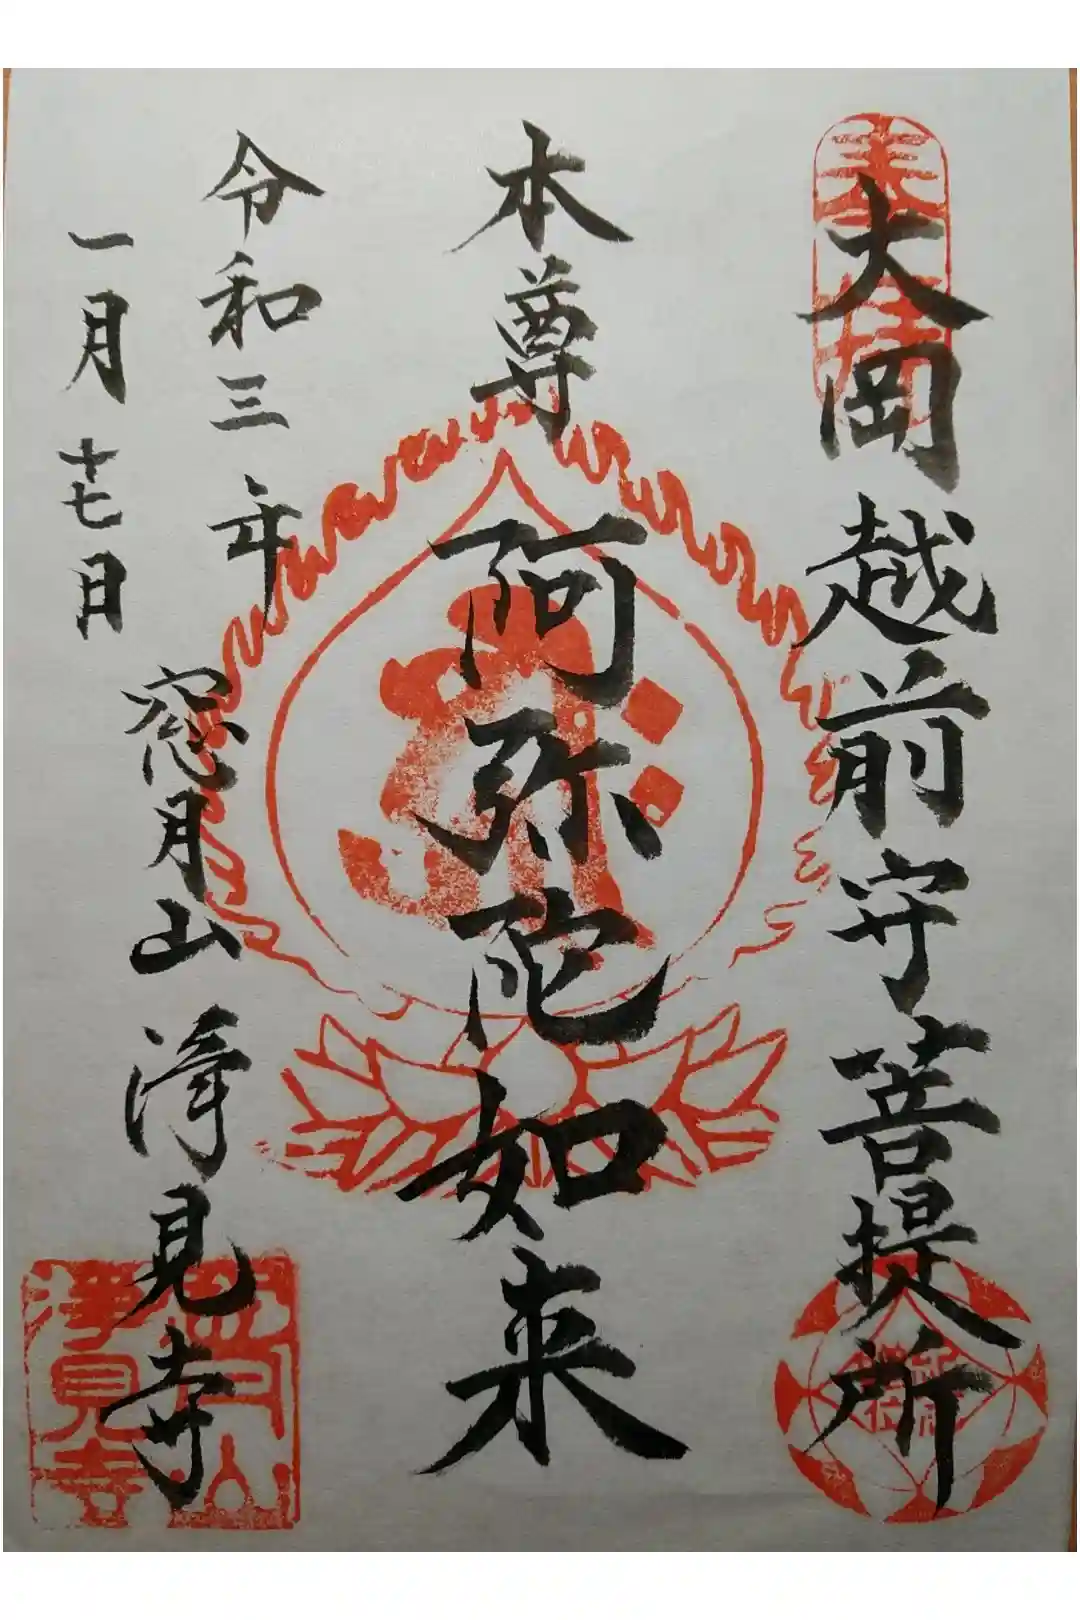 大岡越前守菩提所
本尊 阿弥陀如来
令和三年
一月十七日
窓月山 浄見寺
奉拝
浄見寺